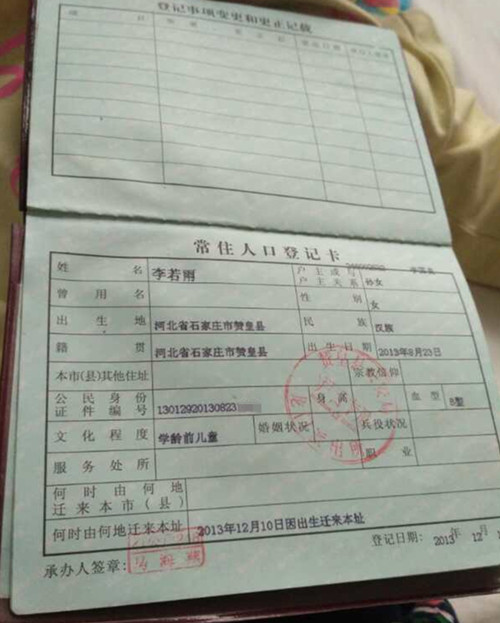 登记事项变更和更正记载
常住人口登记卡
姓 名 李若雨 户主或与户主关系 孙女
曾用名 性别 女
出生地 河北省石家庄市赞皇县 民族 汉族
籍贯 河北省石家庄市赞皇县 出生日期 2013年8月23日
本市(县)其他住址 宗教信仰
公民身份证件编号 13012920130823 身高 血型 B型
文化程度 学龄前儿童 婚姻状况 兵役状况
服务处所 职业
何时由何地迁来本市(县)
何时由何地迁来本址 2013年12月10日因出生迁来本址
承办人签章: 登记日期: 2013年 12月